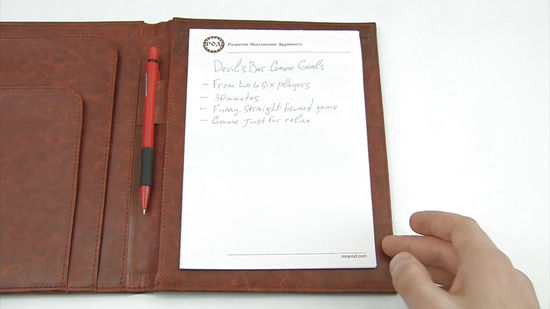 РОД Развитие Образование Духовность
Devil's Bar Game Goals
– From two to six players
– 30 minutes
– Funny, straight forward game
– Game just for relax.
moyrod.com